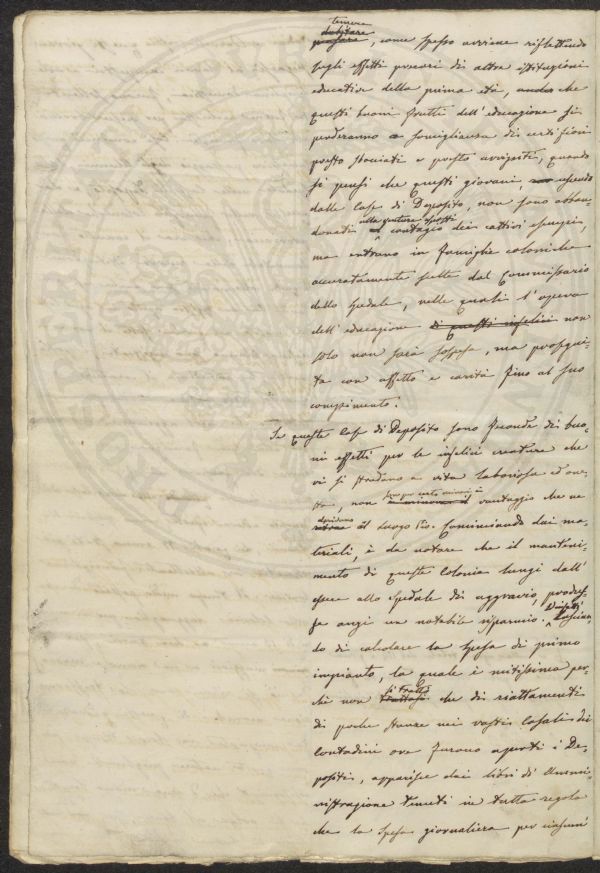 temere
dubitare
pensare, come spesso avviene riflettendo
sugli effetti precari di altre istituzioni
educative della prima età, che
questi buoni frutti dell'educazione si
perderanno a somiglianza di certi fiori
presto sbociati e presto avvizziti, quando
si pensi che questi giovani, uscendo
dalle Case di Deposito, non sono abban-
alla ventura esposti
donati al contagio dei cattivi esempi,
ma entrano in famiglie coloniche
accuratamente scelte dal Commissario
dello Spedale, nelle quali l'opera
dell'educazione di questi infelici non
solo non sarà sospesa, ma prosegui-
ta con affetto e carità fino al suo
compimento.
Se queste Case di Deposito sono feconde di buo-
ni effetti per le infelici creature che
vi si stradano a vita laboriosa ed one-
sta, non sono per certo minori i
è minore il vantaggio che ne
derivano
al Luogo Pio. Cominciando dai ma-
teriali, è da notare che il manteni-
mento di queste Colonie lungi dall'
essere allo Spedale di aggravio, produs-
se anzi un notabile risparmio. Diffatti
Lascian-
do di calcolare la spesa di primo
impianto, la quale è mitissima per-
si tratta
chè non trattasi che di riattamenti
di poche stanze nei vasti Casali di
Contadini ove furono aperti i De-
positi, apparisce dai libri di Ammi-
nistrazione tenuti in tutta regola
che la spesa giornaliera per ciascun